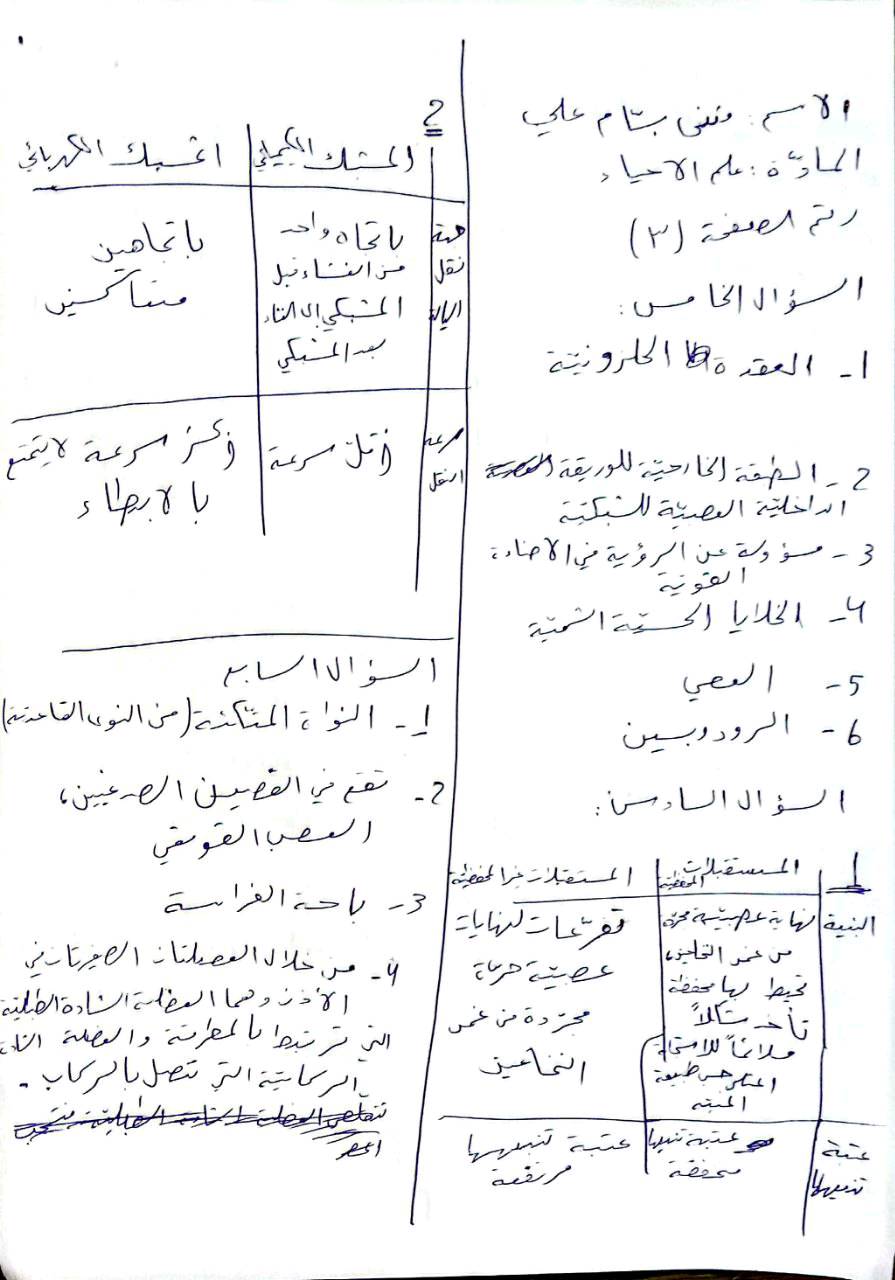 الاسم: بسّام علي
المادّة: علم الاحياء
رقم الصفحة (٣)
السؤال الخامس:
1- العقدة الحلزونيّة
2- الطبقة الخارجيّة للوريقة
الداخليّة العصبيّة للشبكيّة
3- مسؤولة عن الرؤية في الاضاءة
القوية
4- الخلايا الحسيّة الشميّة
5- العصي
6- الرودوبسين
السؤال السادس:
1
المستقبلات المحفظية
المستقبلات غير المحفظيّة
البنية
نهاية عصبيّة مجردة
من غمد النخاعين
تحيط بها محفظة
تأخذ شكلاً
ملائماً للاستجابة
حسب طبيعة
المنبه
تفرّعات لنهايات
عصبيّة حرّة
مجرّدة من غمد
النخاعين
عتبة تنبيهها
عتبة تنبيهها
منخفضة
عتبة تنبيهها
مرتفعة
2
المشبك الكيميائي
المشبك الكهربائي
جهة نقل السيالة
باتجاه واحد
من الغشاء قبل
المشبكي إلى الغشاء
بعد المشبكي
باتجاهين
متعاكسين
سرعة النقل
أقلّ سرعة
أكثر سرعة لا يتمتع
بالابطاء
السؤال السابع
1- النواة المتّكئة (من النوى القاعديّة)
2- تقع في الفصين الصدغيين،
العصب القوقعي
3- باحة الفراسة
4- من خلال العضلتان الصغيرتان في
الأذن وهما العضلة الشادة الطبليّة
التي ترتبط بالمطرقة والعضلة
الركابيّة التي تتصل بالركاب.